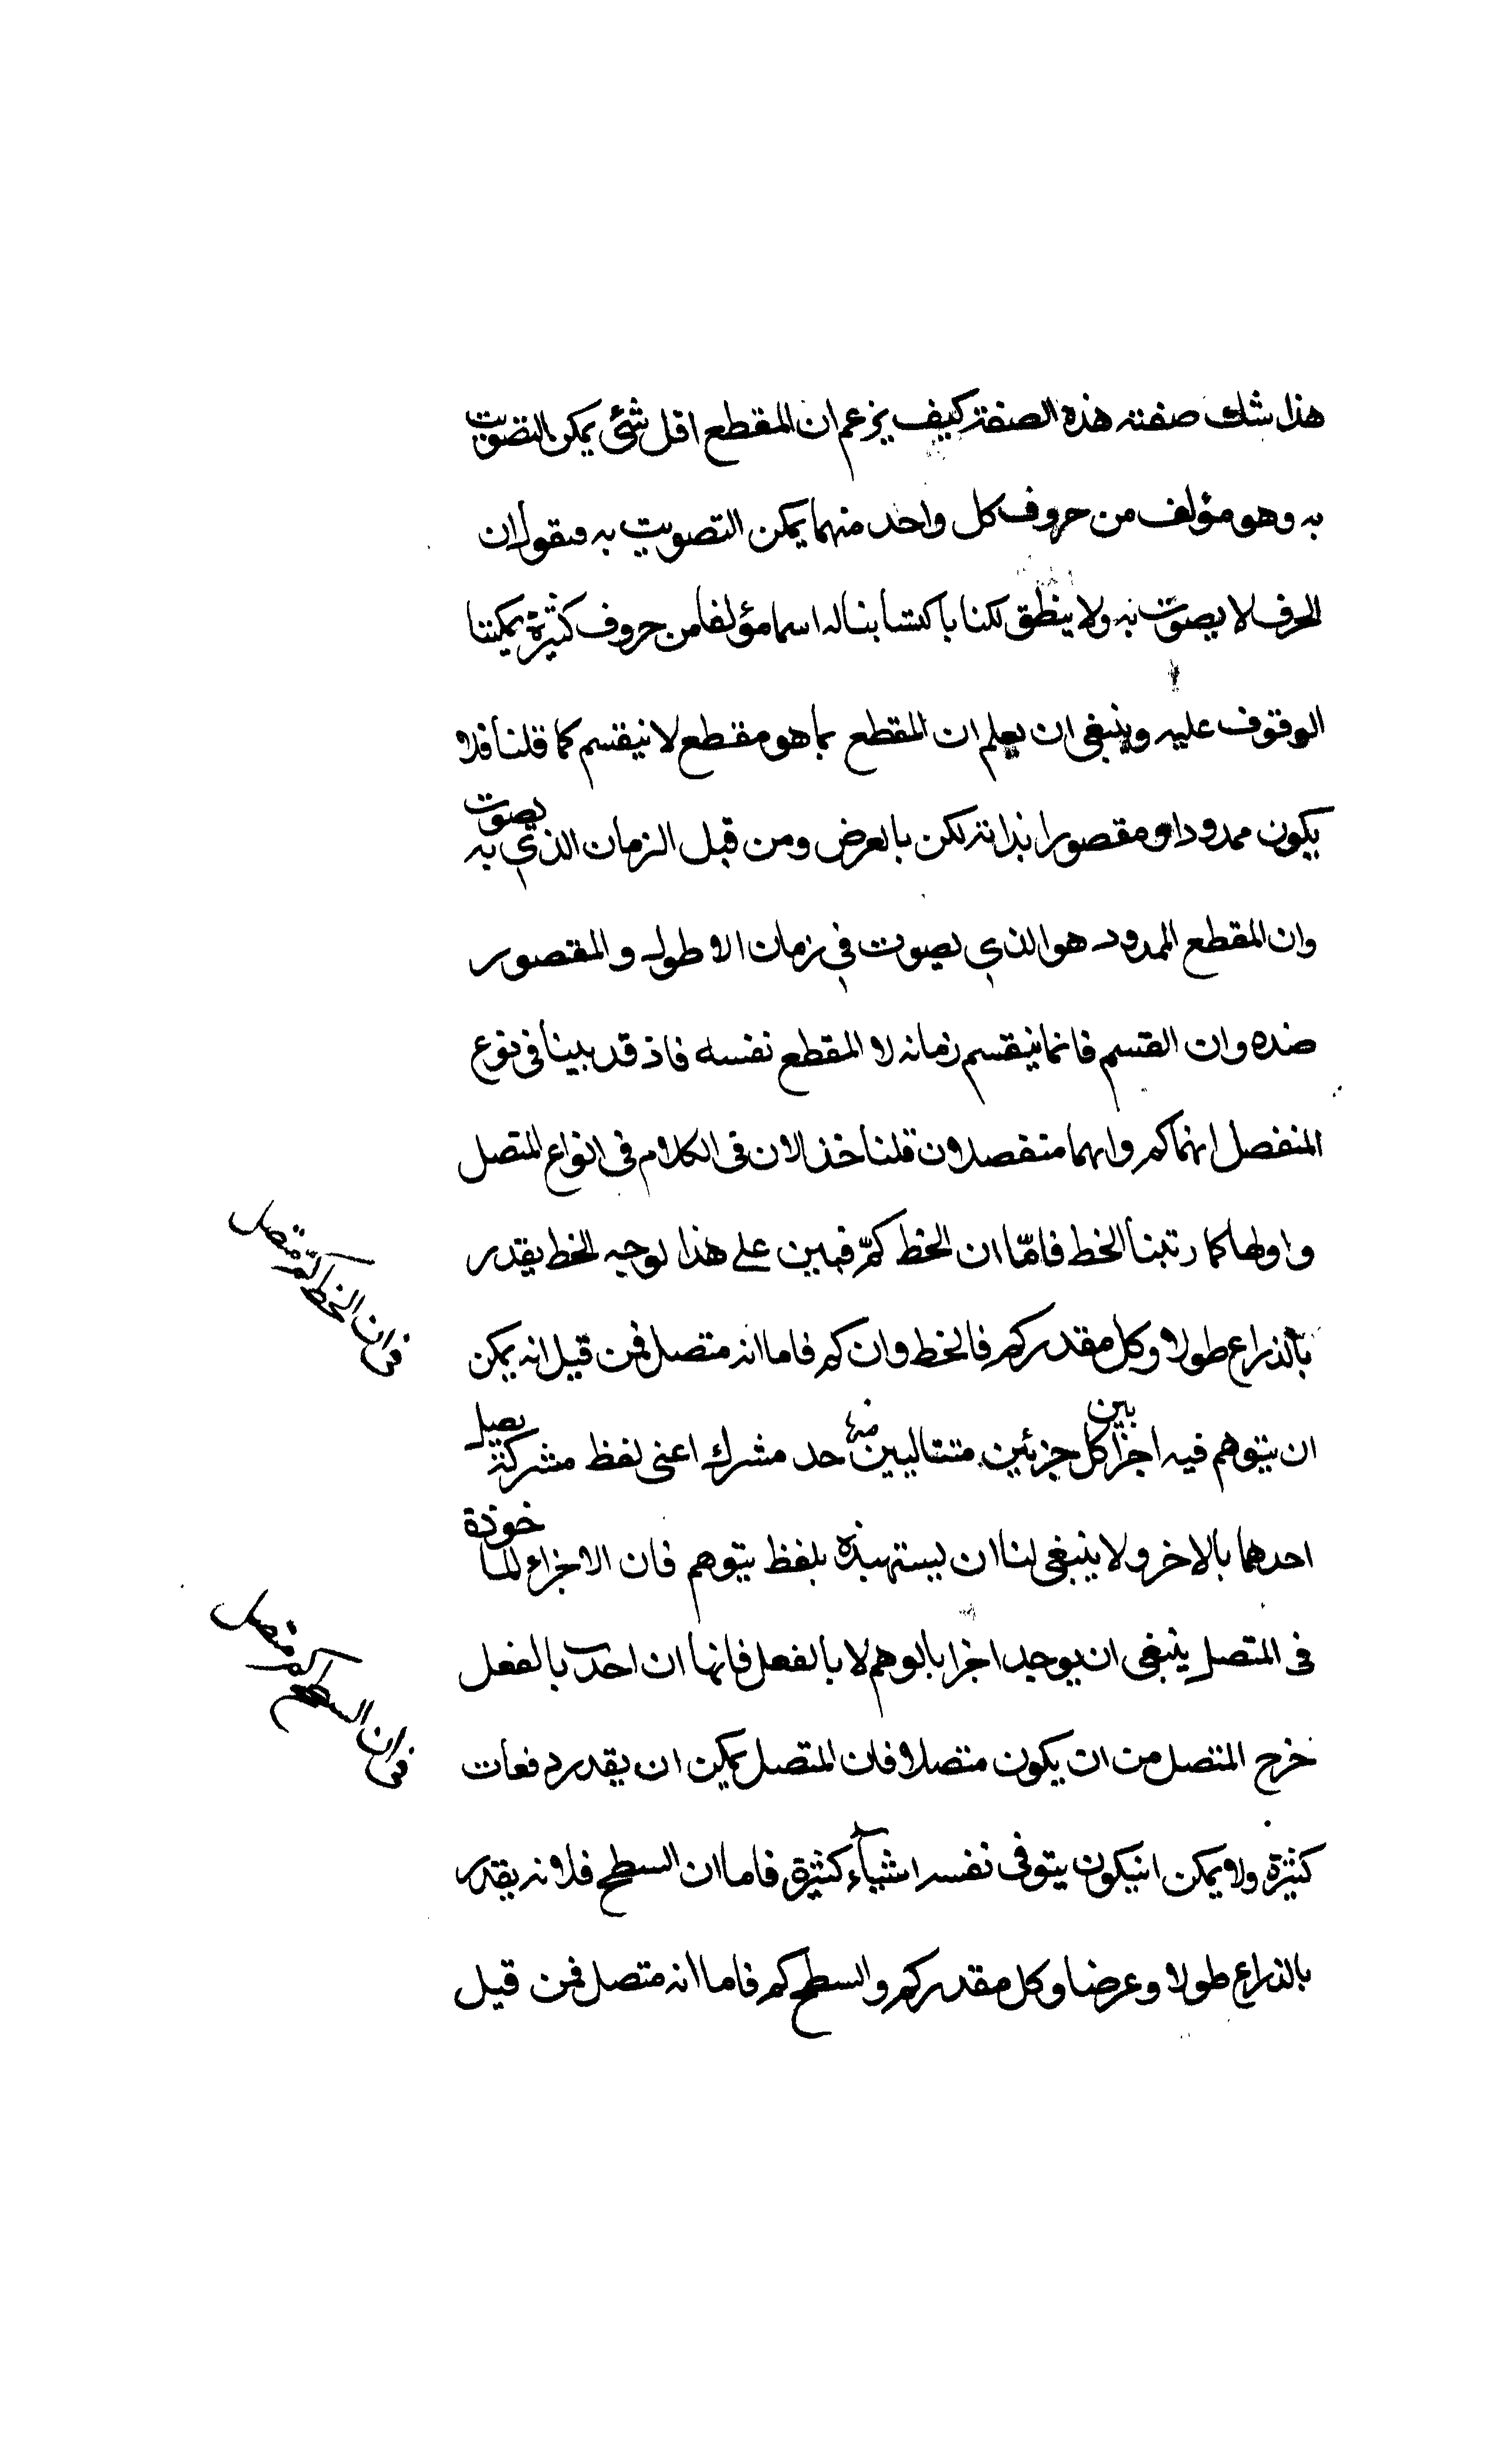 هذا شك صفته هذه الصفة كيف يزعم ان المقطع اقل شئ يمكن التصويت
به وهو مؤلف من حروف كل واحد منهما يمكن التصويت به فنقول ان
الحرف لا يصوّت به ولا ينطق لكنا باكتسابنا له اسما مؤلفا من حروف كثيرة يمكننا
الوقوف عليه وينبغى ان يعلم ان المقطع بما هو مقطع لا ينقسم كما قلنا فلا
يكون ممدودا و مقصورا بذاته لكن بالعرض ومن قبل الزمان الذي يصوت به
وان المقطع الممدود هو الذي يصوت في زمان الاطول والمقصور
ضده وان القسم فانما ينقسم زمانه لا المقطع نفسه فاذ قد بينا فى نوع
المنفصل انهما كم وانهما منفصلان قلنا خذ الان فى الكلام فى انواع المتصل
واولها كما رتبنا الخط فامّا ان الخط كمّ فبين على هذا لوجه الخط يقدر
بالذراع طولا وكل مقدر كم فالخط وان كم فاما انه متصل فمن قيل انه يمكن
ان يتوهم فيه اجزا بين كل جزئين متتاليين منه حد مشرك اعنى لفظ مشركة يصل
احدهما بالاخر ولا ينبغى لنا ان يستهبذه بلفظ يتوهم فان الاجزاء الماخوذة
فى المتصل ينبغى ان يوجد اجزا بالوهم لا بالفعل فانها ان احدت بالفعل
خرج المتصل من ان يكون متصلا فان المتصل يمكن ان يقدر دفعات
كثيرة ولا يمكن انيكون يتوفى نفسه اشياء كثيرة فاما ان السطح فلانه يقدر
بالذراع طولا وعرضا وكل مقدر كم والسطح كم فاما انه متصل فمن قيل
فى ان الخط كم متصل
فى ان السطح كم متصل